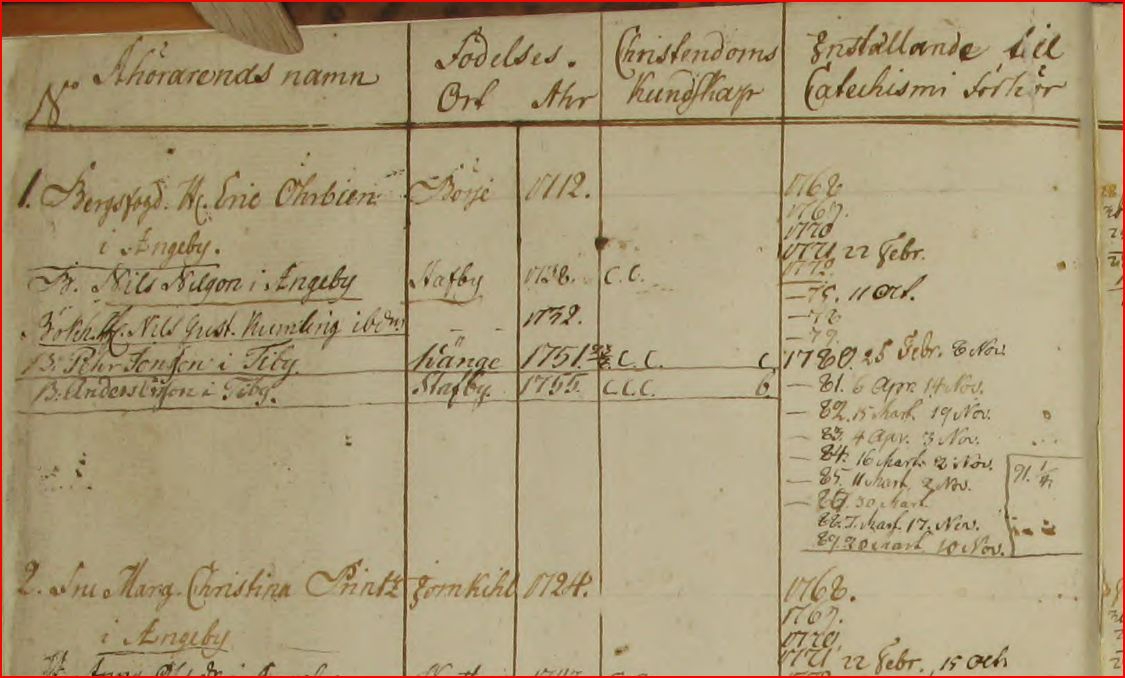 No Åhörarenas namn Födelses. Ort Åhr Christendoms kundskap Inställande till Catechismi förhör
1. Bergsfogd. H. Eric Öhrbien Börje 1712. 1768
1769.
1770
i Ängeby. 1771 22 Febr.
1772.
B. Nils Nilsson i Ängeby Stafby 1738. C.C. — 75. 11 Oct.
— 78
Bokh. H. Nils Gust. Kumling ibdm — — 1732. — 79.
B. Pehr Jonsson i Tiby. Känge 1751. C.C. C 1780. 25 Febr. 6 Nov.
B. Anders i Tiby. Stafby. 1755. C.C.C. 6 — 81. 6 Apr. 14 Nov.
— 82. 15 Mart. 19 Nov.
— 83. 4 Apr. 3 Nov.
— 84. 16 Mart. 2 Nov.
— 85. 11 Mart. 2 Nov. 91.
— 30 Mart
88. 7. Mart. 17. Nov.
89. 20 Mart. 10 Nov.
2. Fru Marg. Christina Printz Jomkihl 1724. 1768.
1769.
i Ängeby 1770
1771 22 Febr. 15 Oct.